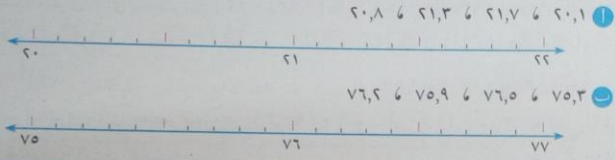 أ ٢٠,١ ، ٢١,٧ ، ٢١,٣ ، ٢٠,٨
٢٠ ٢١ ٢٢
ب ٧٥,٣ ، ٧٦,٥ ، ٧٥,٩ ، ٧٦,٢
٧٥ ٧٦ ٧٧